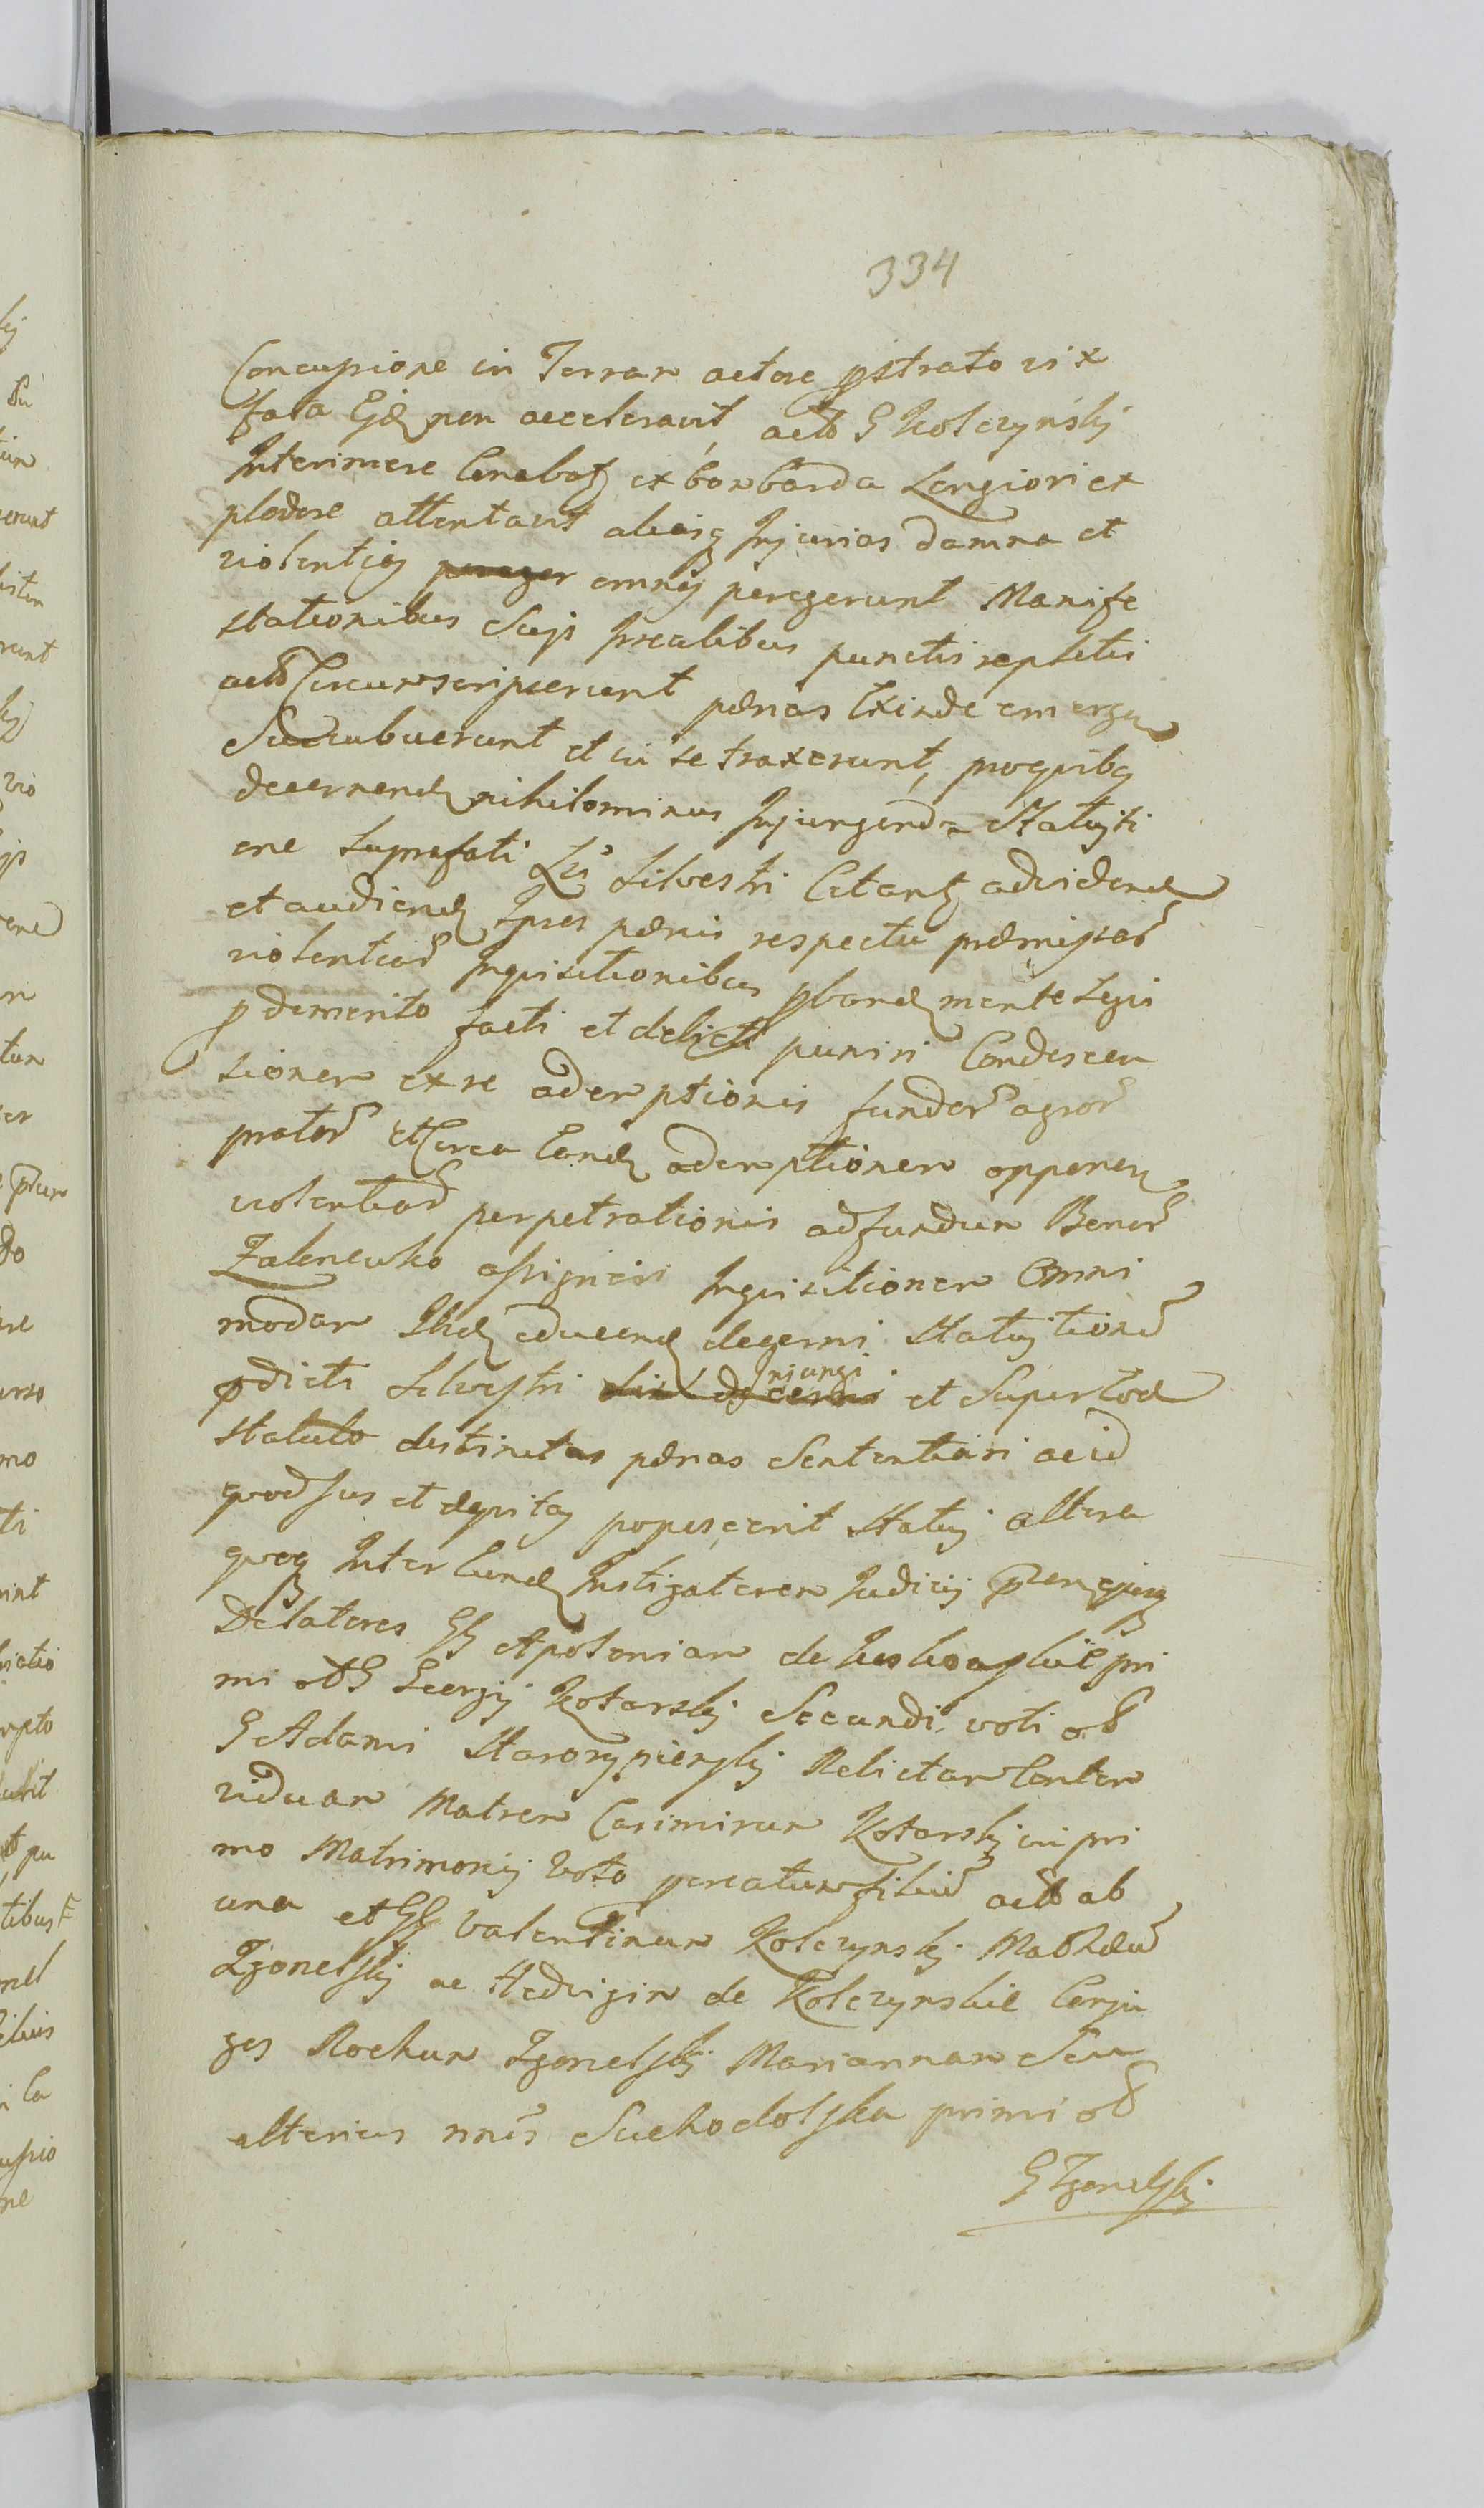 334
Concussione in Terram actore prostrato vix
fata Ejd non acceleravit, actō G Kolczynskj
Interimere Conabatʒ ex bombarda Longiori ex
plodere attentavit aliasq Injurias damna et
violentias pereger omnes peregerunt Manife
stationibus Suis Irrealibus punctis repletis
actō Circumscripserunt pænas Exinde emergen
Succubuerunt et in se traxerunt, proquibq
decernend nihilominus Injungenda Statuiti
one suprafati Lis Silvestri Citantʒ advidend
et audiend Ipsos pænis respectu præmissor
violentiar Inquisitionibus proband mente Legis
p demerito facti et delicti puniri Condescen
sionem ex re ademptionis fundor agror
prator et Circa Eand ademptionem apponen
violentiar perpetrationis ad fundum Bonor
Zalenewko assignari Inquisitionem Omni
modam Ibid educend decerni Statuitionē
pdicti Silvestri njungi et Super Eod
statuto destinatas pænas Sententiari ac id
quod Jus et æquitas poposcerit Statui altera
quoq Inter Eund Instigatorem Judicij pten ejusq
Delatores GG Apoloniam de pri
mi olō G Georgij Kotarskj Secundi voti olō
G Adami Starorypienskj Relictam Consten
viduam Matrem Casimirum Kotarskj in pri
mo Matrimonij Voto procatum filiū actō ab
una et GG Valentinum Kolczynskj Mathæū
Zgonelskj ac Hedvigim de Kolczynskie Conju
ges Rochum Zgonelskj Mariannam Seu
alterius nnis Suchodolska primi olō
G Zgonelskj